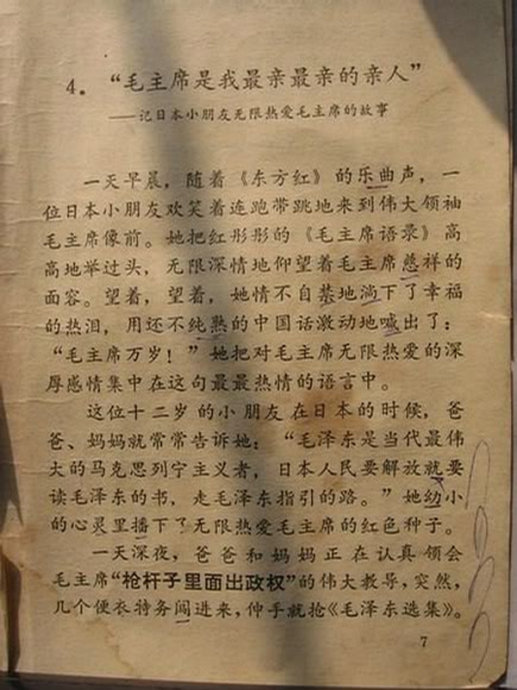 4．“毛主席是我最亲最亲的亲人”
——记日本小朋友无限热爱毛主席的故事
一天早晨，随着《东方红》的乐曲声，一
位日本小朋友欢笑着连跑带跳地来到伟大领袖
毛主席像前。她把红彤彤的《毛主席语录》高
高地举过头，无限深情地仰望着毛主席慈祥的
面容。望着，望着，她情不自禁地淌下了幸福
的热泪，用还不纯熟的中国话激动地喊出了：
“毛主席万岁！”她把对毛主席无限热爱的深
厚感情集中在这句最最热情的语言中。
这位十二岁的小朋友在日本的时候，爸
爸、妈妈就常常告诉她：“毛泽东是当代最伟
大的马克思列宁主义者，日本人民要解放就要
读毛泽东的书，走毛泽东指引的路。”她幼小
的心灵里播下了无限热爱毛主席的红色种子。
一天深夜，爸爸和妈妈正在认真领会
毛主席“枪杆子里面出政权”的伟大教导，突然，
几个便衣特务闯进来，伸手就抢《毛泽东选集》。
7